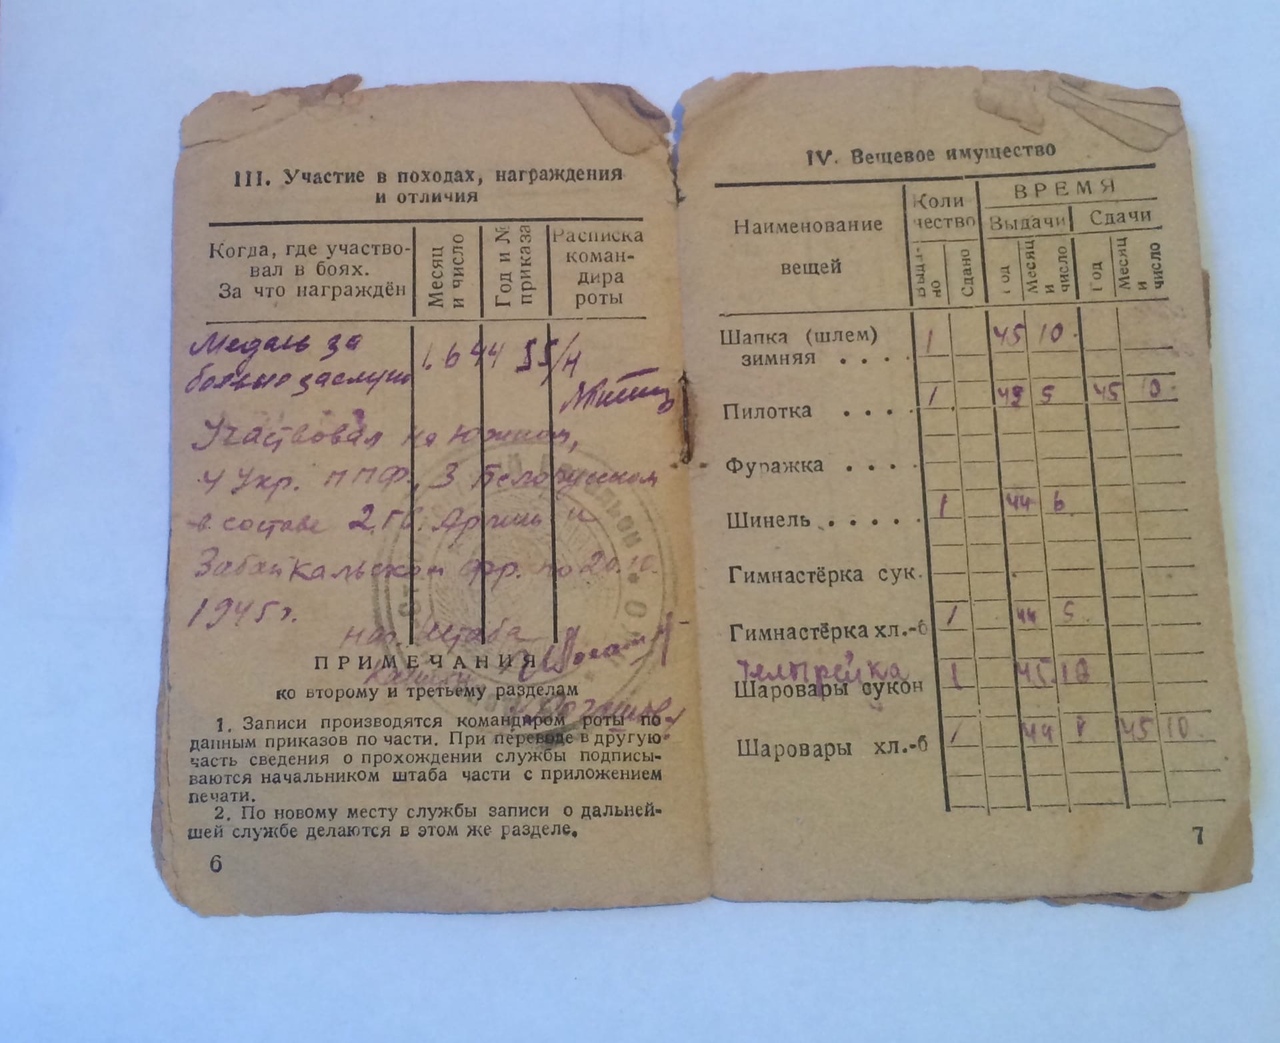 III. Участие в походах, награждения
и отличия
Когда, где участво-
вал в боях.
За что награждён
Месяц
и число
Год и №
приказа
Расписка
коман-
дира
роты
Медаль за 1.6 44 55/н
боевые заслуги
Участвовал на Южном,
4 Укр. ППФ, 3 Белорусском
в составе 2 Гв. Армии и
Забайкальском фр. по 20.10.
1945г.
Нач. штаба
ПРИМЕЧАНИЯ
ко второму и третьему разделам
1. Записи производятся командиром роты по
данным приказов по части. При переводе в другую
часть сведения о прохождении службы подписы-
ваются начальником штаба части с приложением
печати.
2. По новому месту службы записи о дальней-
шей службе делаются в этом же разделе.
6
IV. Вещевое имущество
Наименование
вещей
Коли
чество
ВРЕМЯ
Выдачи
Сдачи
Выда-
но
Сдано
Год
Месяц
и
число
Год
Месяц
и
число
Шапка (шлем)
зимняя . . . . 1 45 10.
Пилотка . . . . 1 5 45 10.
Фуражка . . . .
Шинель . . . . . 1 44 6.
Гимнастёрка сук.
Гимнастёрка хл.-б 1 44 5.
Шаровары сукон 1 45
Шаровары хл.-б 1 44 45 10.
7